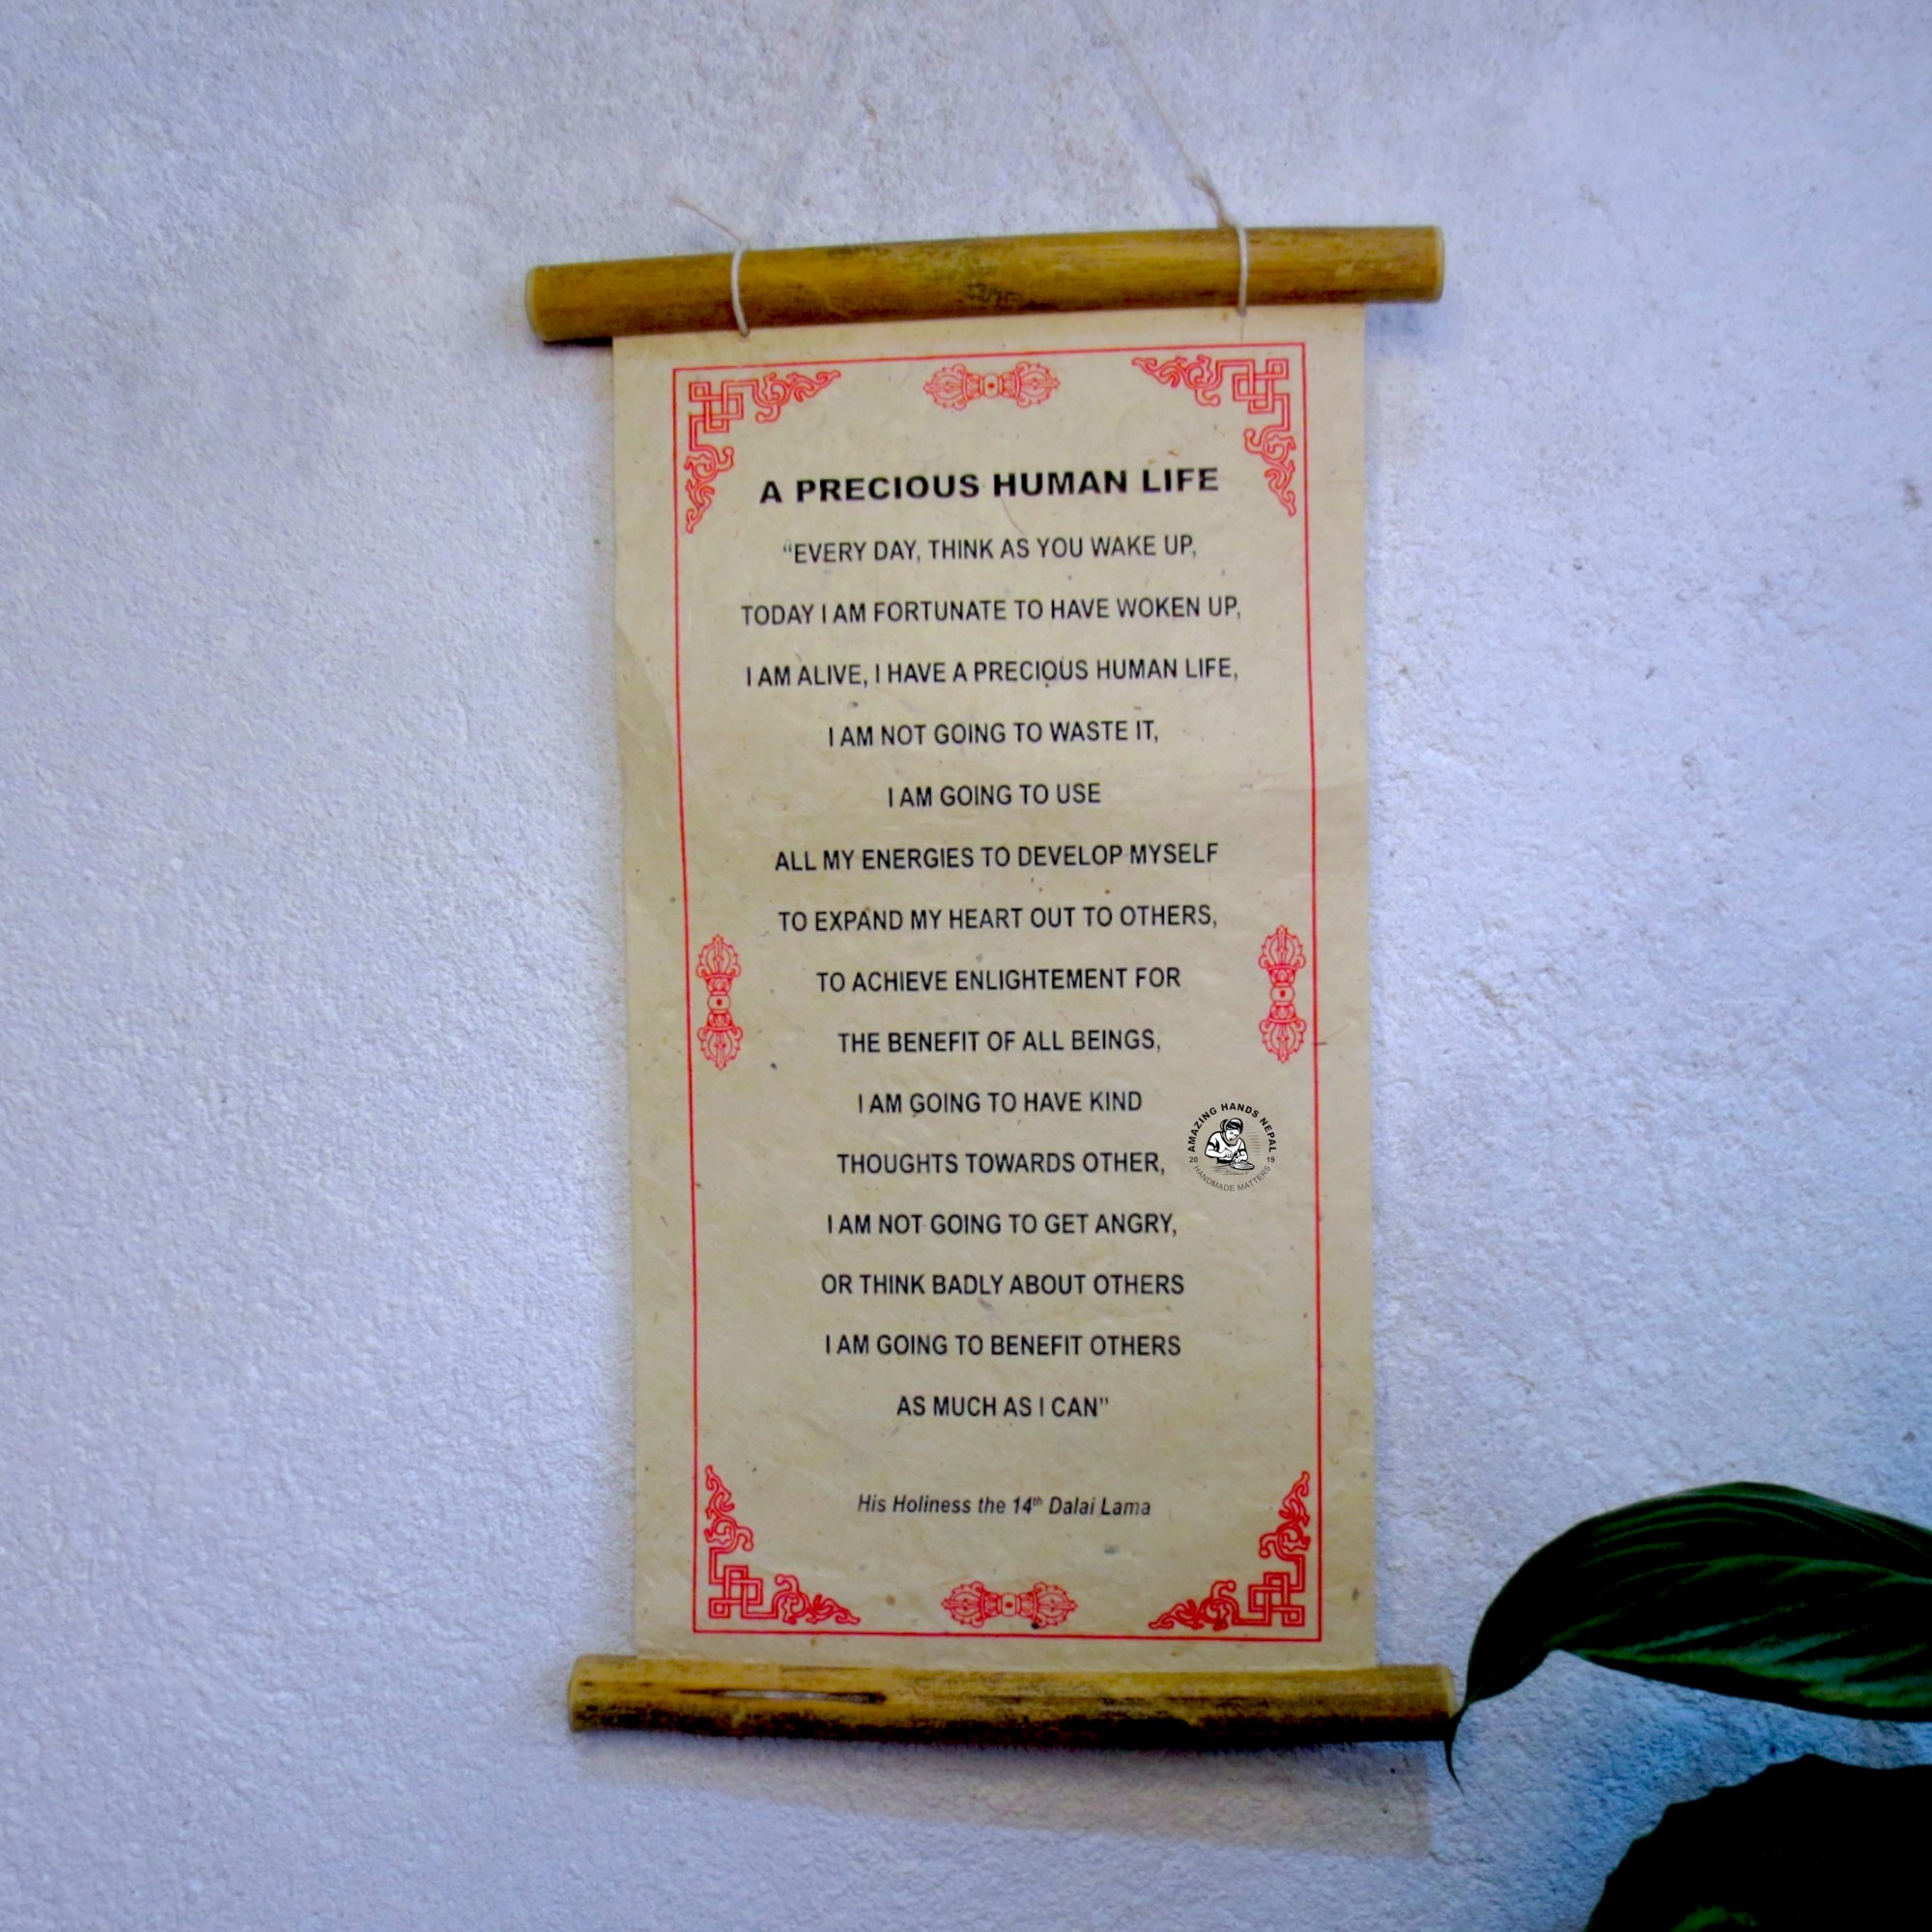 A PRECIOUS HUMAN LIFE
“EVERY DAY, THINK AS YOU WAKE UP,
TODAY I AM FORTUNATE TO HAVE WOKEN UP,
I AM ALIVE, I HAVE A PRECIOUS HUMAN LIFE,
I AM NOT GOING TO WASTE IT,
I AM GOING TO USE
ALL MY ENERGIES TO DEVELOP MYSELF
TO EXPAND MY HEART OUT TO OTHERS,
TO ACHIEVE ENLIGHTEMENT FOR
THE BENEFIT OF ALL BEINGS,
I AM GOING TO HAVE KIND
THOUGHTS TOWARDS OTHER,
I AM NOT GOING TO GET ANGRY,
OR THINK BADLY ABOUT OTHERS
I AM GOING TO BENEFIT OTHERS
AS MUCH AS I CAN”
His Holiness the 14th Dalai Lama
AMAZING HANDS NEPAL
20 19
HANDMADE MATTERS